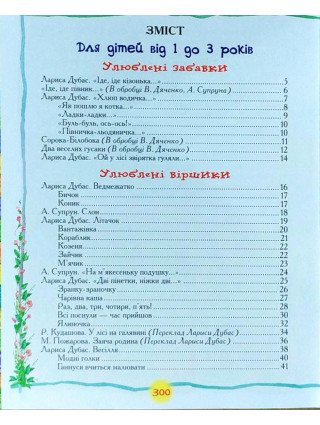 ЗМІСТ
Для дітей від 1 до 3 років
Улюблені забавки
Лариса Дубас. «Їде, їде кізонька...» 5
«Їде, їде півник...» (В обробці В. Дяченко, А. Супруна) 6
Лариса Дубас. «Хлюп водичка...» 7
«Як пошлю я котка...» 8
«Ладки-ладки...» 9
«Буль-буль, ось-ось!» 10
«Півничка-льодяничка...» 10
Сорока-Білобока (В обробці В. Дяченко) 11
Два веселих гусаки (В обробці В. Дяченко) 12
Лариса Дубас. «Ой у лісі звірятка гуляли...» 14
Улюблені віршики
Лариса Дубас. Ведмежатко 16
Бичок 17
Коник 17
А. Супрун. Слон 18
Лариса Дубас. Літачок 19
Вантажівка 20
Кораблик 21
Козеня 22
Зайчик 22
М'ячик 23
А. Супрун. «На м'якесеньку подушку...» 24
Лариса Дубас. «Дві пінетки, ніжки дві...» 25
Зранку-зраночку 26
Чарівна каша 27
Раз, два, три, чотири, п'ять! 28
Всі поснули — час прийшов 30
Ялиночка 32
Р. Кудашова. У лісі на галявині (Переклад Лариси Дубас) 34
М. Пожарова. Заяча родина (Переклад Лариси Дубас) 36
Лариса Дубас. Весілля 38
Модні голки 40
Гапнуся вчиться малювати 41
300